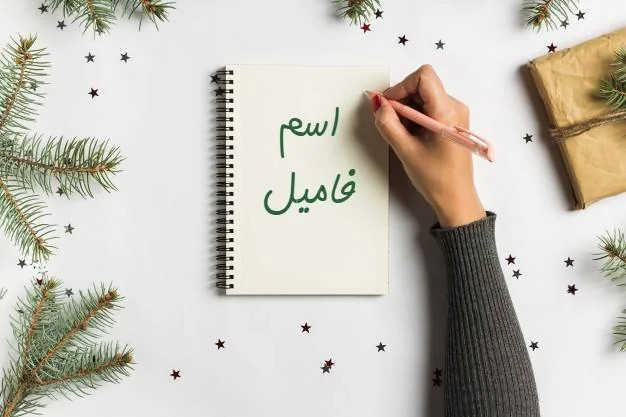 اسم
فامیل